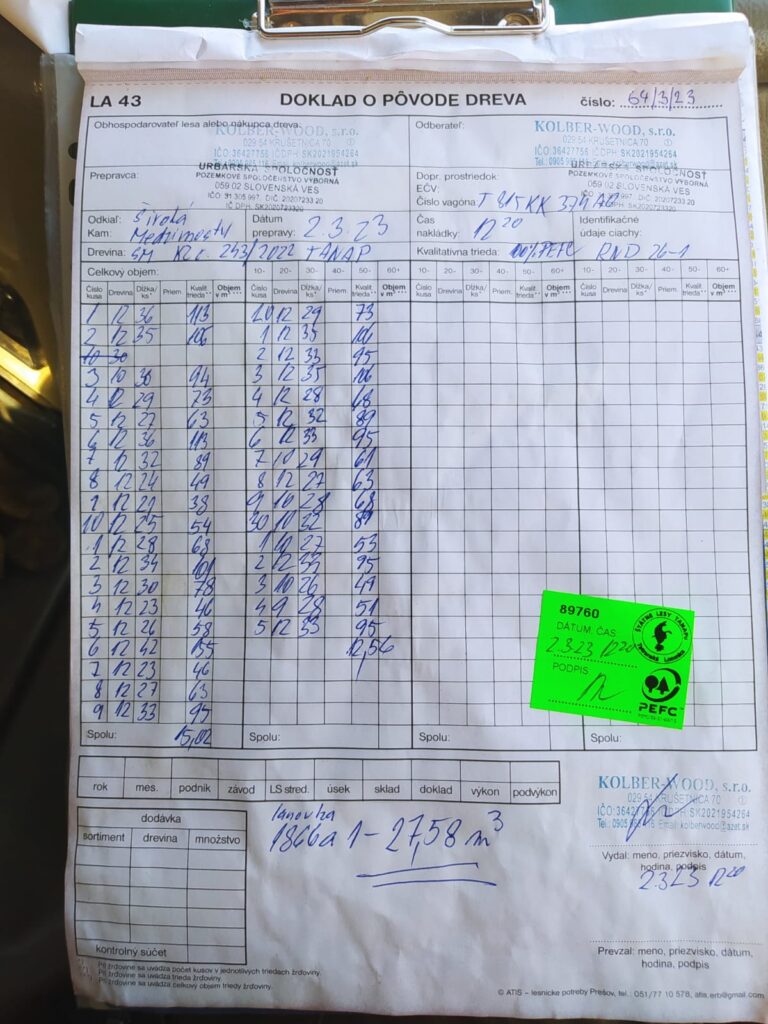 LA 43 DOKLAD O PÔVODE DREVA číslo: 64/3/23
Obhospodarovateľ lesa alebo nákupca dreva: Odberateľ:
KOLBER-WOOD, s.r.o. KOLBER-WOOD, s.r.o.
029 54 KRUŠETNICA 70 029 54 KRUŠETNICA 70
IČO:36427756 IČDPH: SK2021954264 IČO:36427756 IČDPH: SK2021954264
URBÁRSKA SPOLOČNOSŤ
Prepravca: POZEMKOVÉ SPOLOČENSTVO VÝBORNÁ Dopr. prostriedok:
059 02 SLOVENSKÁ VES EČV:
IČO: 31 305 997 DIČ: 2020723320 Číslo vagóna:
IČ DPH: SK2020723320
Odkiaľ: Široká Dátum Čas Identifikačné
Kam: prepravy: 2.3.23 nakládky: 12 20 údaje ciachy:
Drevina: SM 243/2022 TANAP Kvalitatívna trieda: 100% PEFC RND 26-1
Celkový objem: 10- 20- 30- 40- 50- 60+ 10- 20- 30- 40- 50- 60+
Číslo kusa Drevina Dĺžka/ks* Priem. Kvalit. trieda** Objem v m³***
1 12 36 113 20 12 29 73
2 12 35 106 1 12 35 106
10 30 2 12 33 95
3 10 30 94 3 12 35 106
4 12 29 73 4 12 28 68
5 12 27 63 5 12 32 89
6 12 36 113 6 12 33 95
7 12 32 89 7 10 29 61
8 12 24 49 8 12 27 63
9 12 21 38 9 10 28 68
10 12 25 54 30 10 32
1 12 28 68 1 10 27 53
2 12 34 101 2 12 33 95
3 12 30 78 3 10 26 49
4 12 23 46 4 9 28 51
5 12 26 58 5 12 33 95
6 12 42 155 12,56
7 12 23 46
8 12 27 63
9 12 33 95
Spolu: 15,02 Spolu: Spolu: Spolu:
89760
DÁTUM, ČAS
2.3.23 12 20
PODPIS
ŠTÁTNE LESY TANAPU
PEFC
rok mes. podnik závod LS stred. úsek sklad doklad výkon podvýkon
dodávka
sortiment drevina množstvo
kontrolný súčet
lanovka
1866a 1 - 27,58 m³
KOLBER-WOOD, s.r.o.
029 54 KRUŠETNICA 70
Vydal: meno, priezvisko, dátum,
hodina, podpis
2.3.23 12 20
Prevzal: meno, priezvisko, dátum,
hodina, podpis
Pri žrdovine sa uvádza počet kusov v jednotlivých triedach žrdoviny.
Pri žrdovine sa uvádza trieda žrdoviny.
Pri žrdovine sa uvádza celkový objem triedy žrdoviny.
© ATIS – lesnícke potreby Prešov, tel.: 051/77 10 578, atis.erb@gmail.com